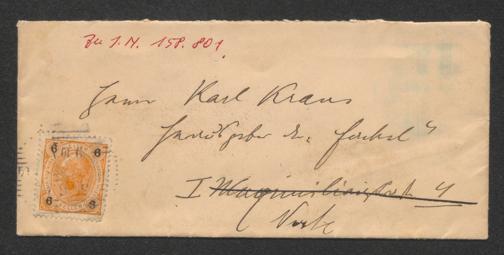 Zu I.N. 158.801
Herrn Karl Kraus
Herausgeber der „Fackel"
I Maximilianstraße 4
6 6
6 6